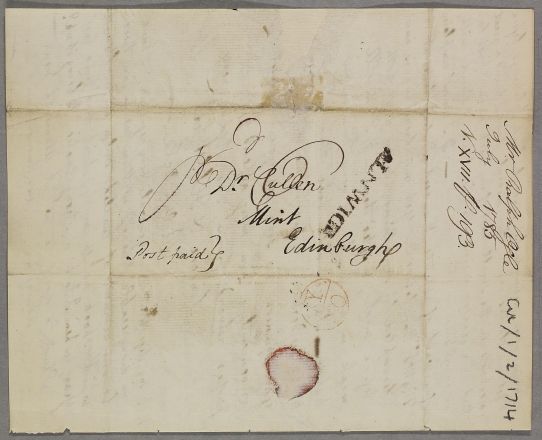 Dr. Cullen
Mint
Edinburgh
Post paid
ALNWICK
July 1785
N. XVIII
193
CUL/1/2/1714